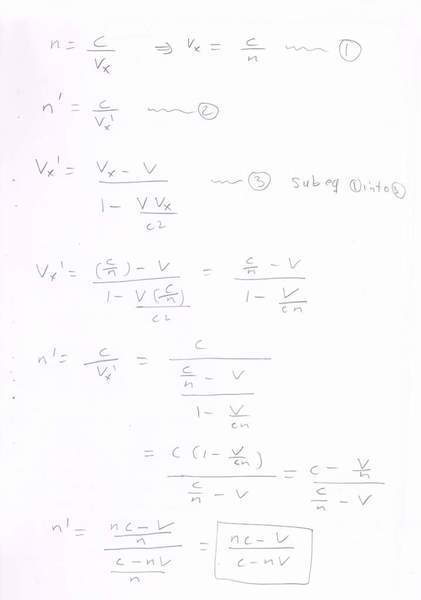 n = c/Vx ⇒ Vx = c/n ~~~ ①
n' = c/Vx' ~~~ ②
Vx' = (Vx - V)/(1 - VVx/c2) ~~~ ③ sub eq ① into ③
Vx' = ((c/n) - V)/(1 - V(c/n)/c2) = (c/n - V)/(1 - V/cn)
n' = c/Vx' = c/((c/n - V)/(1 - V/cn))
= c(1 - V/cn)/(c/n - V) = (c - V/n)/(c/n - V)
n' = ((nc - V)/n)/((c - nV)/n) = (nc - V)/(c - nV)